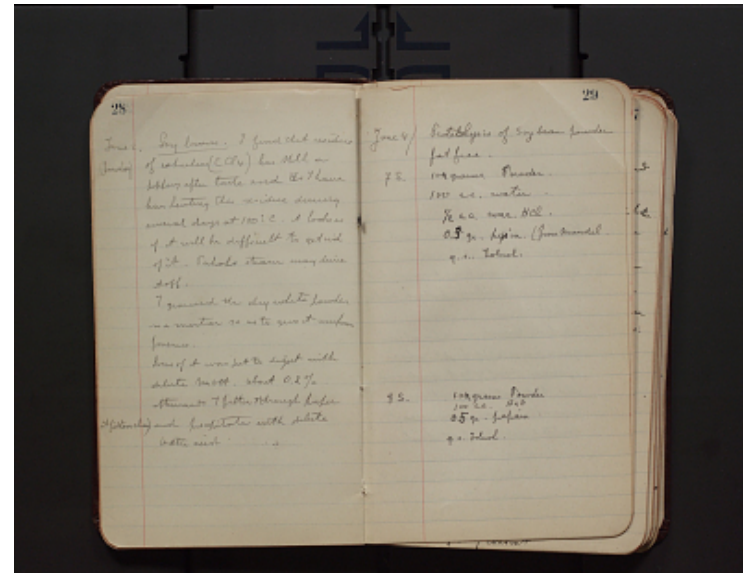 28
June 2, Soy beans. I find that residue
(Sunday) of extraction (CCl4) has still a
after taste and tho I have
been heating this residue
several days at 100° C. it looks as
if it will be difficult to get rid
of it. Perhaps steam may drive
it off.
I ground the dry white powder
in a mortar so as to give it uniform
fineness.
Some of it was put to digest with
dilute NaOH. about 0.2%
afterwards I filter through paper
and precipitate with dilute
acid.
29
June 4/ Proteolysis of Soybean powder
fat free.
7 S. grams Powder
100 c.c. water
½ c.c. conc. HCl.
0.5 gr. Pepsin (from Mandel
q.s. Toluol.
8 S. grams Powder
100 c.c. H2O
0.5 gr. papain
q.s. Toluol.